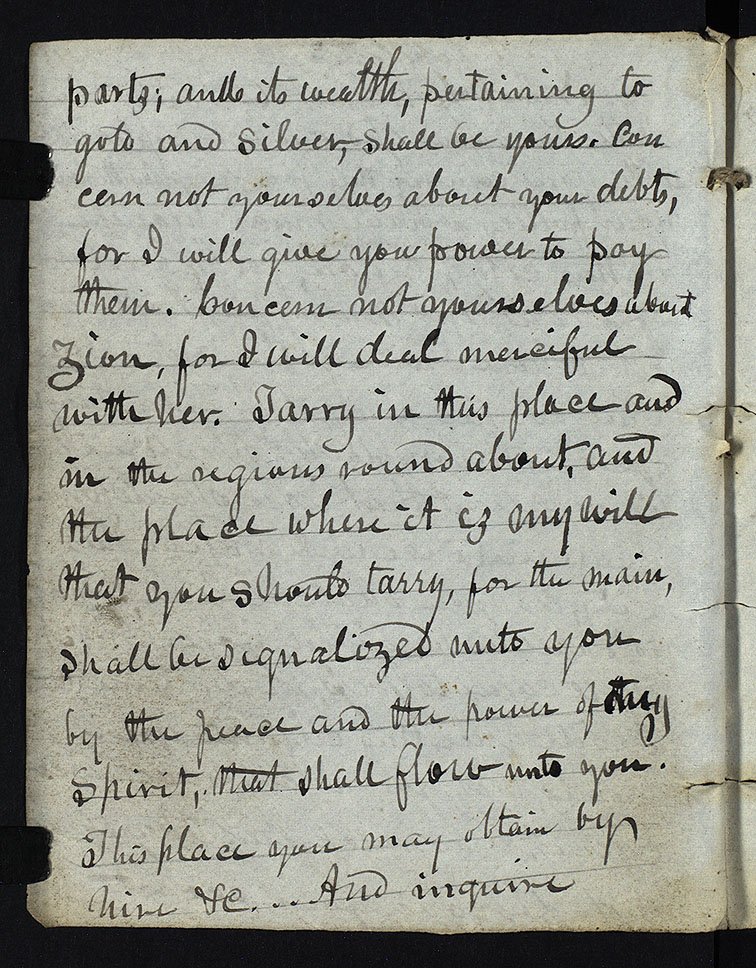 parts; and its wealth, pertaining to
gold and silver, shall be yours. Con
cern not yourselves about your debts,
for I will give you power to pay
them. Concern not yourselves about
Zion, for I will deal merciful
with her. Tarry in this place and
in the regions round about, and
the place where it is my will
that you should tarry, for the main,
shall be signalized unto you
by the peace and the power of my
Spirit, that shall flow unto you.
This place you may obtain by
hire &c... And inquire